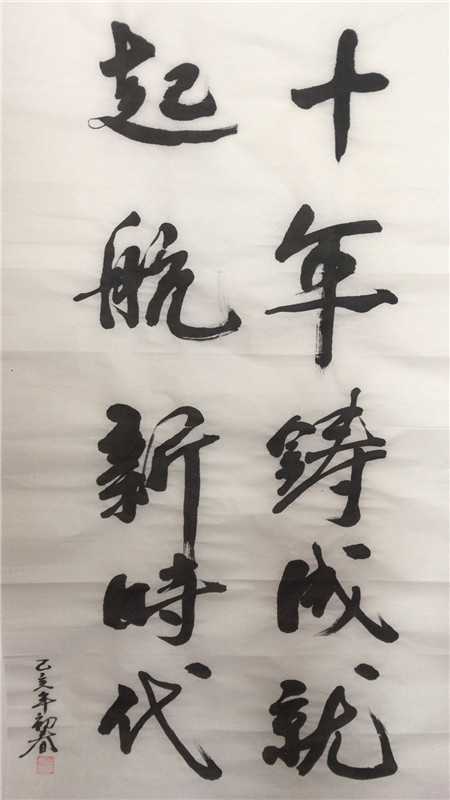 十年鑄成就
起航新時代
己亥年初春